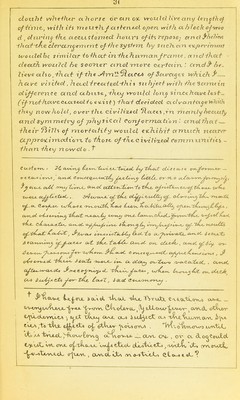 31
doubt whether a horse or an ox would live any length
of time, with its mouth fastened open with a block of woo
d, during the accustomed hours of its repose, and I believe
that the derangement of the system by such an experiment
would be similar to that in the human frame, and that
death would be sooner and more certain: and I be
lieve also, that if the Amn Races of Savages which I
have visited, had treated this subject with the same in
difference and abuse, they would long since have lost
(if not have ceased to exist) that decided advantage which
they now hold, over the civilized Races, in manly beauty
and symmetry of physical conformation: and that
their Bills of mortality would exhibit a much nearer
approximation to those of the civilized communities
than they now do. †
custom. Having been twice tried by that disease
occasions, and consequently feeling little or no alarm for myself
I gave all my time and attention to the assistance of those who
were afflicted. Aware of the difficulty of closing the mouth
of a corpse whose mouth has been habitually open through life
and observing that nearly every one
the character and
of that habit, I was involuntarily led to a private and secret
scanning of faces at the table and on deck, and of six or
seven persons for whom I had consequent apprehensions, I
observed their seats were in a day or two vacated, and
afterwards I recognized their faces, when brought on deck
as subjects for the last, sad ceremony.
† I have before said that the Brute creations are
everywhere free from Cholera, Yellow fever and other
epidemics; yet they are as subject as the human spe
cies, to the effects of other poisons. Who knows until
it is tried, how long a horse, an ox, or a dog could
exist in one of those infected districts, with its mouth
fastened open, and its nostrils closed?